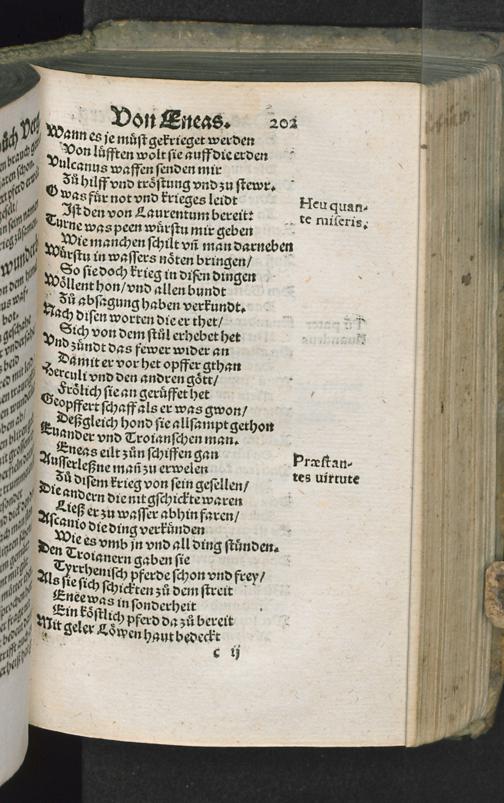 Von Eneas. 202
Wann es je müst gekrieget werden
Von lüfften wolt sie auff die erden
Vulcanus waffen senden mir
Zů hilff vnd tröstung vnd zů stewr.
O was für not vnd krieges leidt
Ist den von Laurentum bereit:
Heu quan-
te miseris.
Turne was peen würstu mir geben
Wie manchen schilt vñ man darneben
Würstu in wassers nöten bringen/
So sie doch krieg in disen dingen
Wöllent hon/ vnd allen bundt
Zů absagung haben verkundt.
Nach disen worten die er thet/
Sich von dem stůl erhebet het
Vnd zündt das fewer wider an
Damit er vor het opffer gthan
Herculi vnd den andren gött/
Frölich sie an gerüffet het
Geopffert schaff als er was gwon/
Deßgleich hond sie allsampt gethon
Euander vnd Troianschen man.
Eneas eilt zůn schiffen gan
Ausserleßne mañ zu erwelen
Præstan-
tes uirtute
Zů disem krieg von sein gesellen/
Die andern die nit gschickte waren
Ließ er zů wasser abhin faren/
Ascanio die ding verkünden
Wie es vmb jn vnd all ding stünden.
Den Troianern gaben sie
Tyrrhenisch pferde schon vnd frey/
Als sie sich schickten zů dem streit
Enee was in sonderheit
Ein köstlich pferd da zů bereit
Mit geler Löwen haut bedeckt
c ij